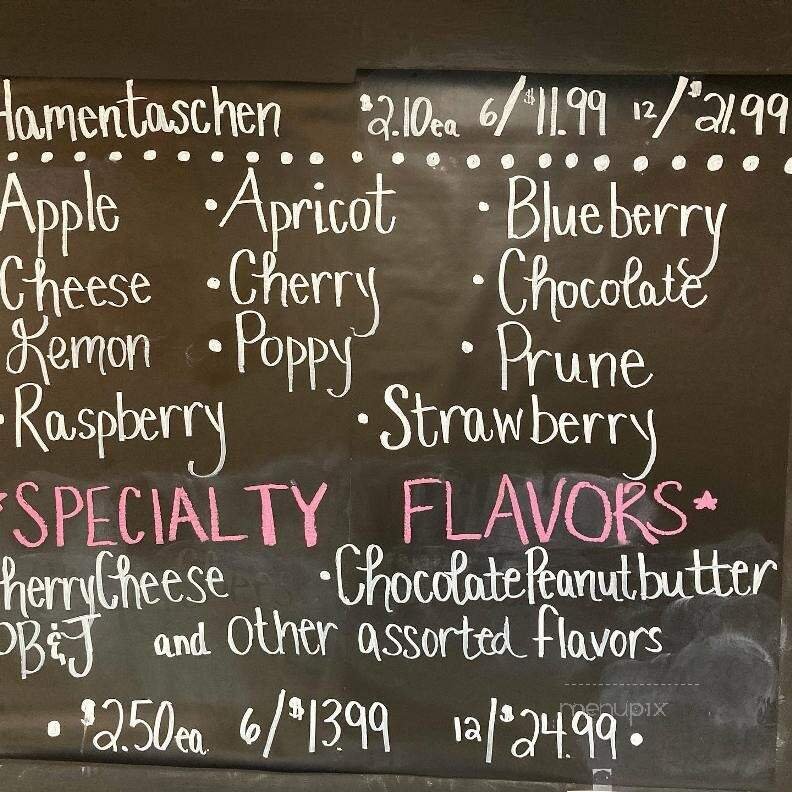 Hamentaschen $2.10ea 6/$11.99 12/$21.99
Apple • Apricot • Blueberry
Cheese • Cherry • Chocolate
Lemon • Poppy • Prune
• Raspberry • Strawberry
*SPECIALTY FLAVORS*
herryCheese • ChocolatePeanutbutter
PB&J and Other assorted flavors
• $2.50ea 6/$13.99 12/$24.99 •
menupix